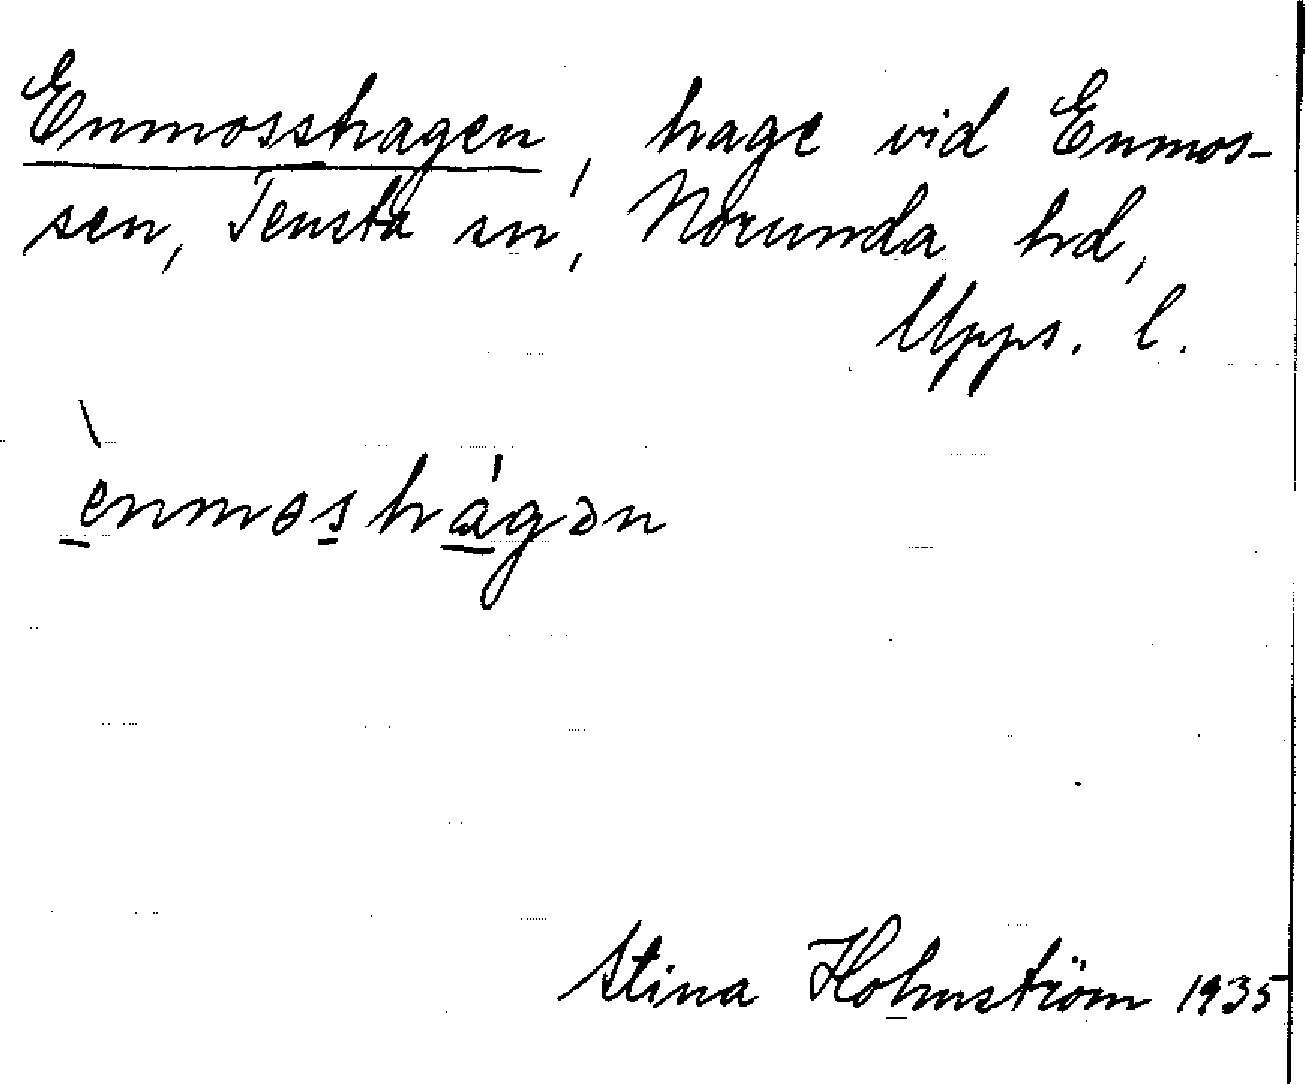 Enmosshagen, hage vid Enmos-
sen, Tensta sn, Norunda hd,
Upps. l.
ènmoshágən
Stina Holmström 1935